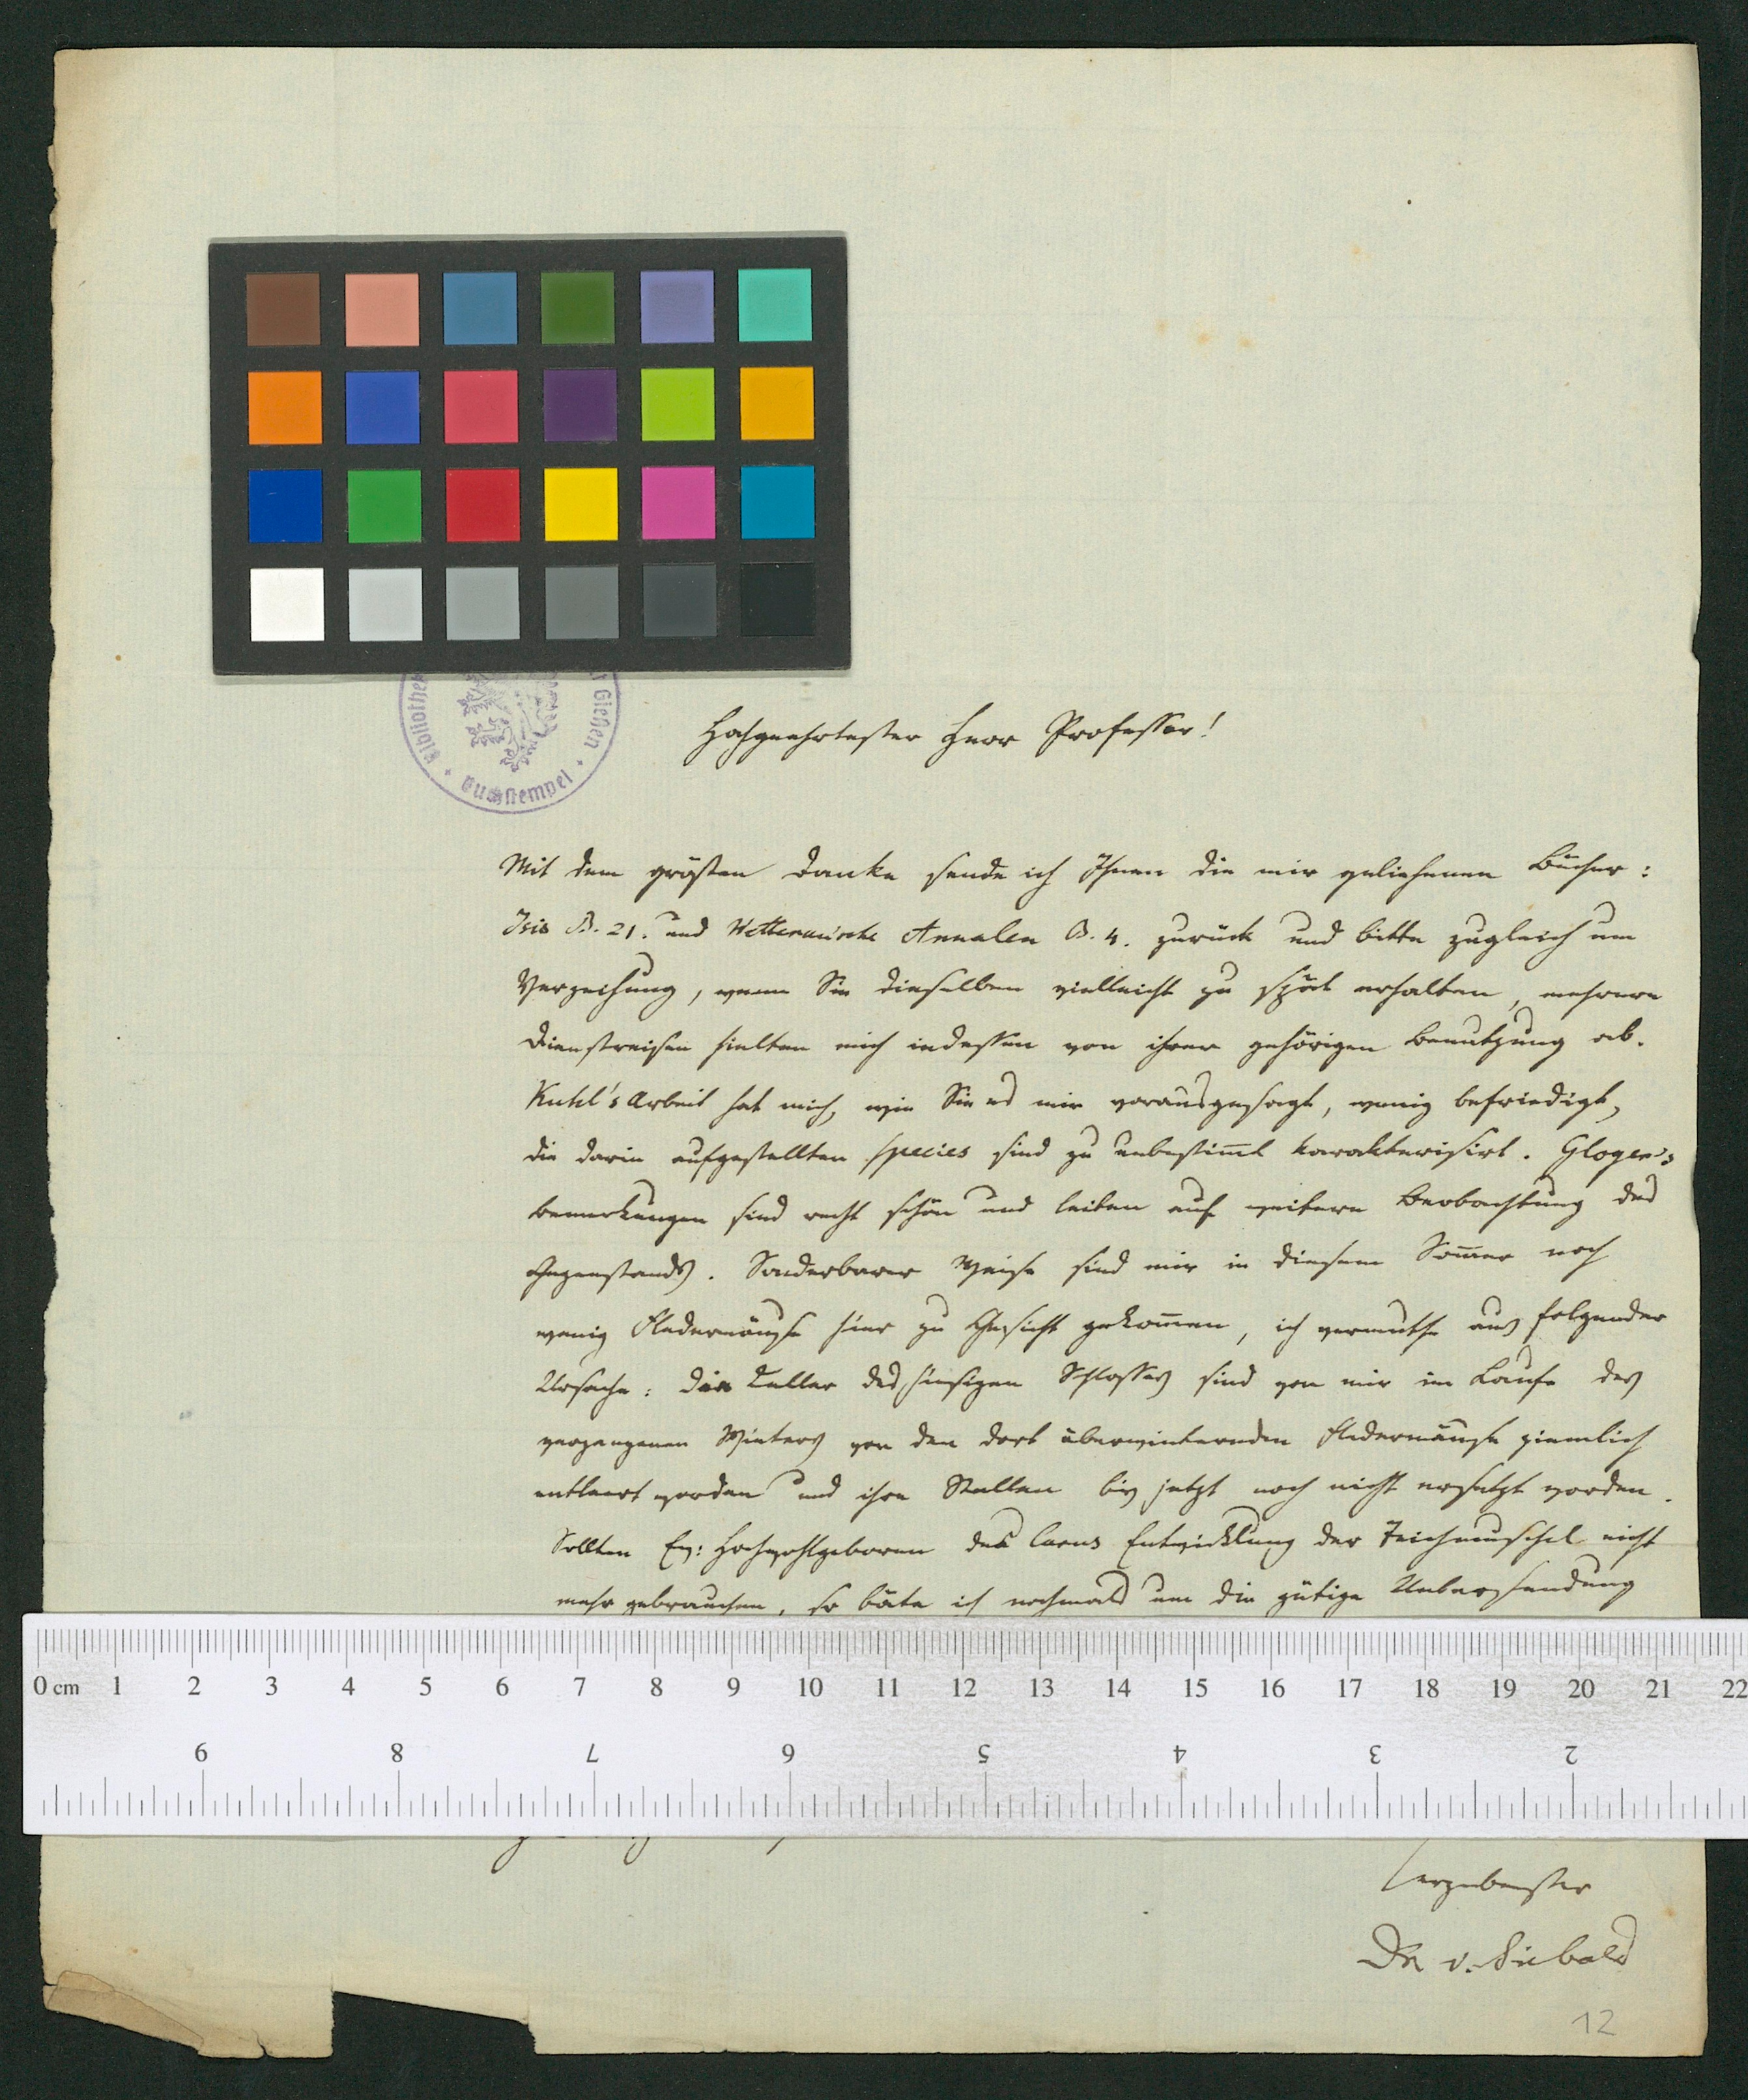 Bibliothek
Gießen
Buchstempel
Hochgeehrtester Herr Professor!
Mit dem größten Danke sende ich Ihnen die mir geliehenen Bücher:
Isis B. 21. und Wetterauische Annalen B. 4. zurück und bitte zugleich um
Verzeihung, wenn Sie dieselben vielleicht zu spät erhalten, mehrere
Dienstreisen hielten mich indessen von ihrer gehörigen Benutzung ab.
Kuhl's Arbeit hat mich, wie Sie es mir vorausgesagt, wenig befriedigt,
die darin aufgestellten species sind zu unbestim̄t karakterisirt. Gloger's
Bemerkungen sind recht schön und leiten auf weitere Beobachtung des
Gegenstands. Sonderbarer Weise sind mir in diesem Som̄er noch
wenig Fledermäuse hier zu Gesicht gekom̄en, ich vermuthe aus folgender
Ursache: die Keller des hiesigen Schlosses sind von mir im Laufe des
vergangenen Winters von den dort überwinternden Fledermäuse ziemlich
entleert worden und ihre Stellen bis jetzt noch nicht ersetzt worden.
Sollten Ew: Hochwohlgeboren des Carus Entwicklung der Teichmuschel nicht
mehr gebrauchen, so bäte ich nochmals um die gütige Uebersendung
0 cm 1 2 3 4 5 6 7 8 9 10 11 12 13 14 15 16 17 18 19 20 21 22
9 8 7 6 5 4 3 2
ergebenster
Dr v. Siebold
12